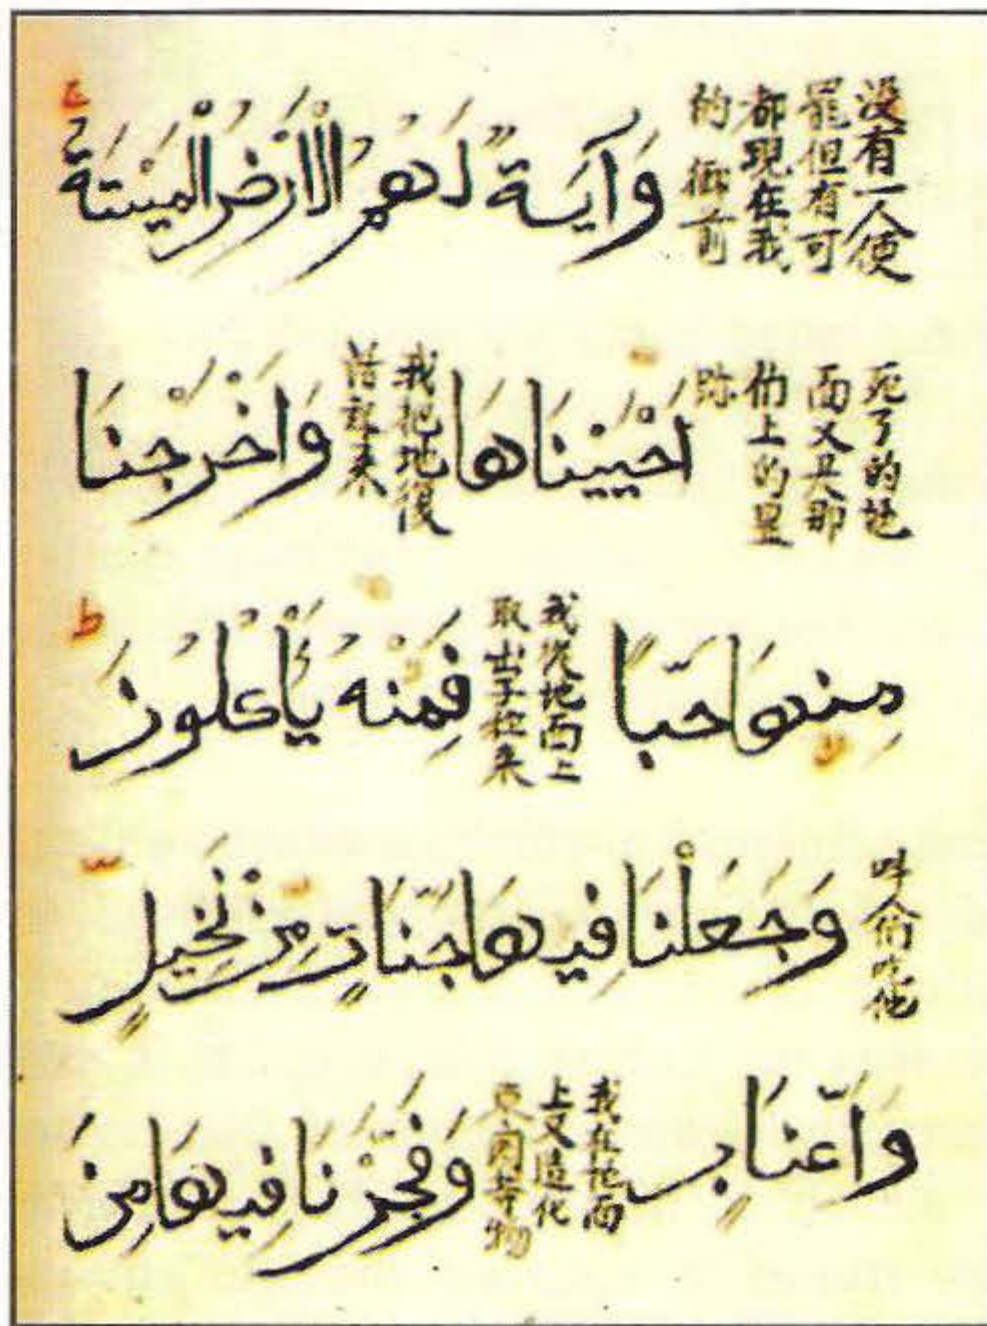 没有一人便
罷但有可
都現在我
的御前
وَآيَةٌ لَهُمُ الْاَرْضُ الْمَيْتَةُ
死了的地
面又是那
上的显
跡
اَحْيَيْنَاهَا
我把地復
活起来
وَاَخْرَجْنَا
مِنْهَا حَبًّا
我從地面上
取出子粒来
فَمِنْهُ يَأْكُلُونَ
吃他
وَجَعَلْنَا فِيهَا جَنَّاتٍ مِنْ نَخِيلٍ
وَاَعْنَابٍ
我在地面
上又造化
園等物
وَفَجَّرْنَا فِيهَا مِنَ